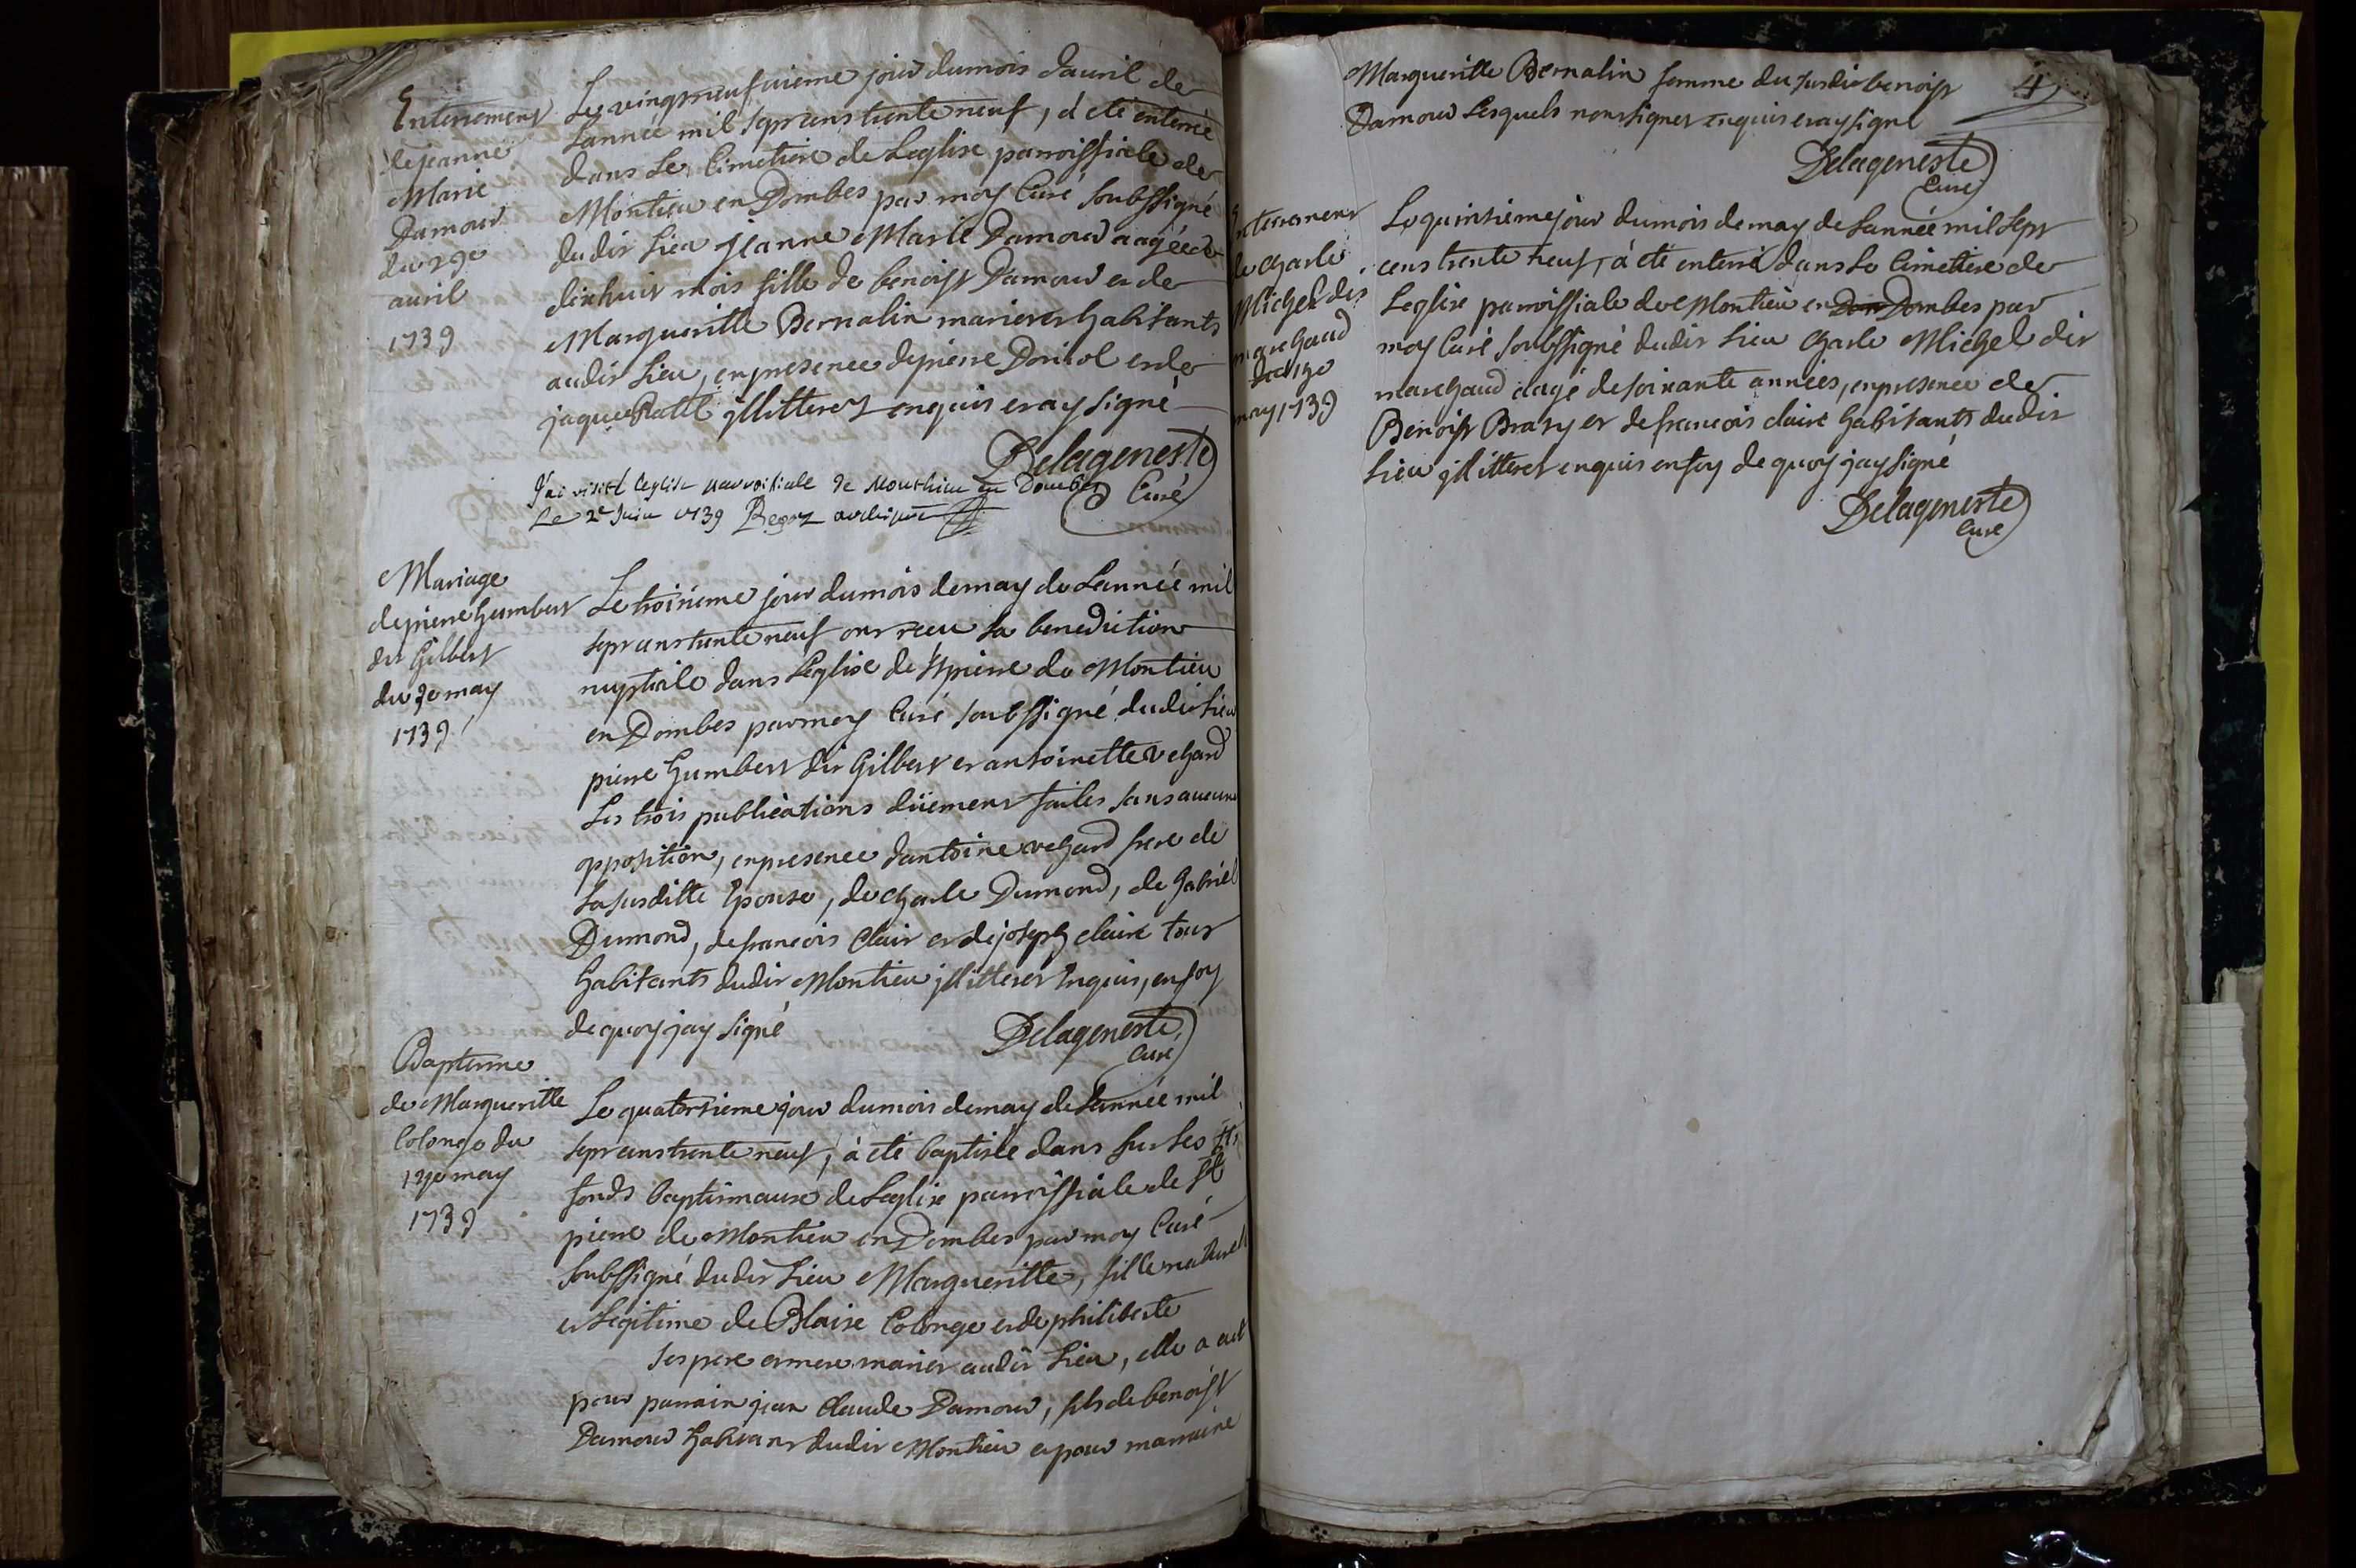 Enterrement
de jeanne
Marie
Damour
du 29e
auril
1739
Le vingt neufuieme jour du mois dauril de
Lannée mil sept cens trente neuf, á été enterrée
dans Le Cimetiere de Leglise parroissiale de
Montieu en Dombes par moy Curé soubssigné
dudit Lieu Jeanne Marie Damour aagée de
dix huit mois fille de benoist Damour et de
Margueritte Bernalin mariez et habitants
audit Lieu, en presence de pierre et de
jaque jllitterez enquis et ay signé
Delageneste
Curé
J'ai visité l'eglise parroissiale de Monthieu en Dombes
Le 2e Juin 1739 archiprètre
Mariage
de pierre humbert
dit Gilbert
du 3e may
1739
Le troisieme jour du mois de may de Lannée mil
sept cens trente neuf ont receu la benediction
nuptiale dans Leglise de St pierre de Montieu
en Dombes par moy Curé soubssigné dudit Lieu
pierre humbert dit Gilbert et antoinette Vehard
Les trois publications düement faites sans aucune
opposition, en presence dantoine vehard frere de
La susditte Epouse, de charle Dumond, de Gabriel
Dumond, de francois Clair et de joseph claire tous
habitants dudit Montieu jllitterez Enquis, en foy
de quoy jay signé
Delageneste
Curé
Baptesme
de Margueritte
Colonge du
may
1739
Le quatorsieme jour du mois de may de Lannée mil
sept cens trente neuf, à eté baptisée dans sur Les sts
fonds baptismaux de Leglise parroissiale de St
pierre de Montieu en Dombes par moy Curé
soubssigné dudit Lieu Margueritte, fille naturell
et Legitime de Blaise Colonge et de philiberte
ses pere et mere mariez audit Lieu, elle a eut
pour parrain jean Claude Damour, fils de benoist
Damour habitant dudit Montieu et pour marraine
4
Margueritte Bernalin femme du susdit benoist
Damour Lesquels nont signez enquis et ay signé
Delageneste
Curé
Enterrement
de charle
Michel dit
marchand
du 15e
may 1739
Le quinsieme jour du mois de may de Lannée mil sept
cens trente neuf, à eté enterré dans Le Cimetiere de
Leglise parroissiale de Montieu en Dom Dombes par
moy Curé soubssigné dudit Lieu Charle Michel dit
marchand aagé de soixante années, en presence de
Benoist et de francois claire habitants dudit
Lieu jllitterez enquis en foy de quoy jay signé
Delageneste
Curé